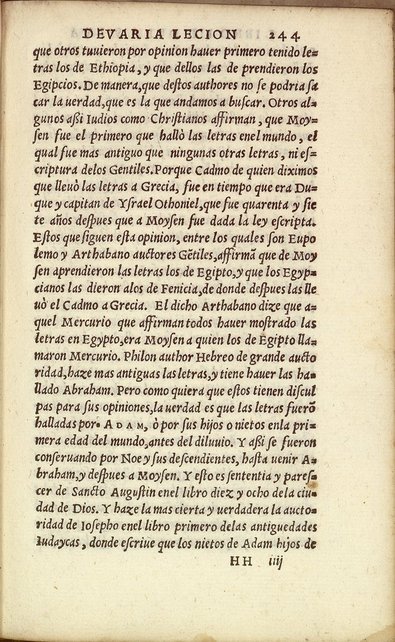 DEVARIA LECION 244
que otros tuuieron por opinion hauer primero tenido le=
tras los de Ethiopia, y que dellos las de prendieron los
Egipcios. De manera, que destos authores no se podria sa
car la uerdad, que es la que andamos a buscar. Otros al=
gunos asi Iudios como Christianos affirman, que Moy=
sen fue el primero que hallò las letras enel mundo, el
qual fue mas antiguo que ningunas otras letras, ni es=
criptura delos Gentiles. Porque Cadmo de quien diximos
que lleuò las letras a Grecia, fue en tiempo que era Du=
que y capitan de Ysrael Othoniel, que fue quarenta y sie
te años despues que a Moysen fue dada la ley escripta.
Estos que siguen esta opinion, entre los quales son Eupo
lemo y Arthabano auctores Gẽtiles, affirmã que de Moy
sen aprendieron las letras los de Egipto, y que los Egyp=
cianos las dieron alos de Fenicia, de donde despues las lle
uò el Cadmo a Grecia. El dicho Arthabano dize que a=
quel Mercurio que affirman todos hauer mostrado las
letras en Egypto, era Moysen a quien los de Egipto lla=
maron Mercurio. Philon author Hebreo de grande aucto
ridad, haze mas antiguas las letras, y tiene hauer las ha=
llado Abraham. Pero como quiera que estos tienen discul
pas para sus opiniones, la uerdad es que las letras fuerõ
halladas por ADAM, ò por sus hijos o nietos enla pri=
mera edad del mundo, antes del diluuio. Y asi se fueron
conseruando por Noe y sus descendientes, hasta uenir A=
braham, y despues a Moysen. Y esto es sententia y pares=
cer de Sancto Augustin enel libro diez y ocho de la ciu=
dad de Dios. Y haze la mas cierta y uerdadera la aucto=
ridad de Iosepho enel libro primero delas antiguedades
Iudaycas, donde escriue que los nietos de Adam hijos de
HH iiij